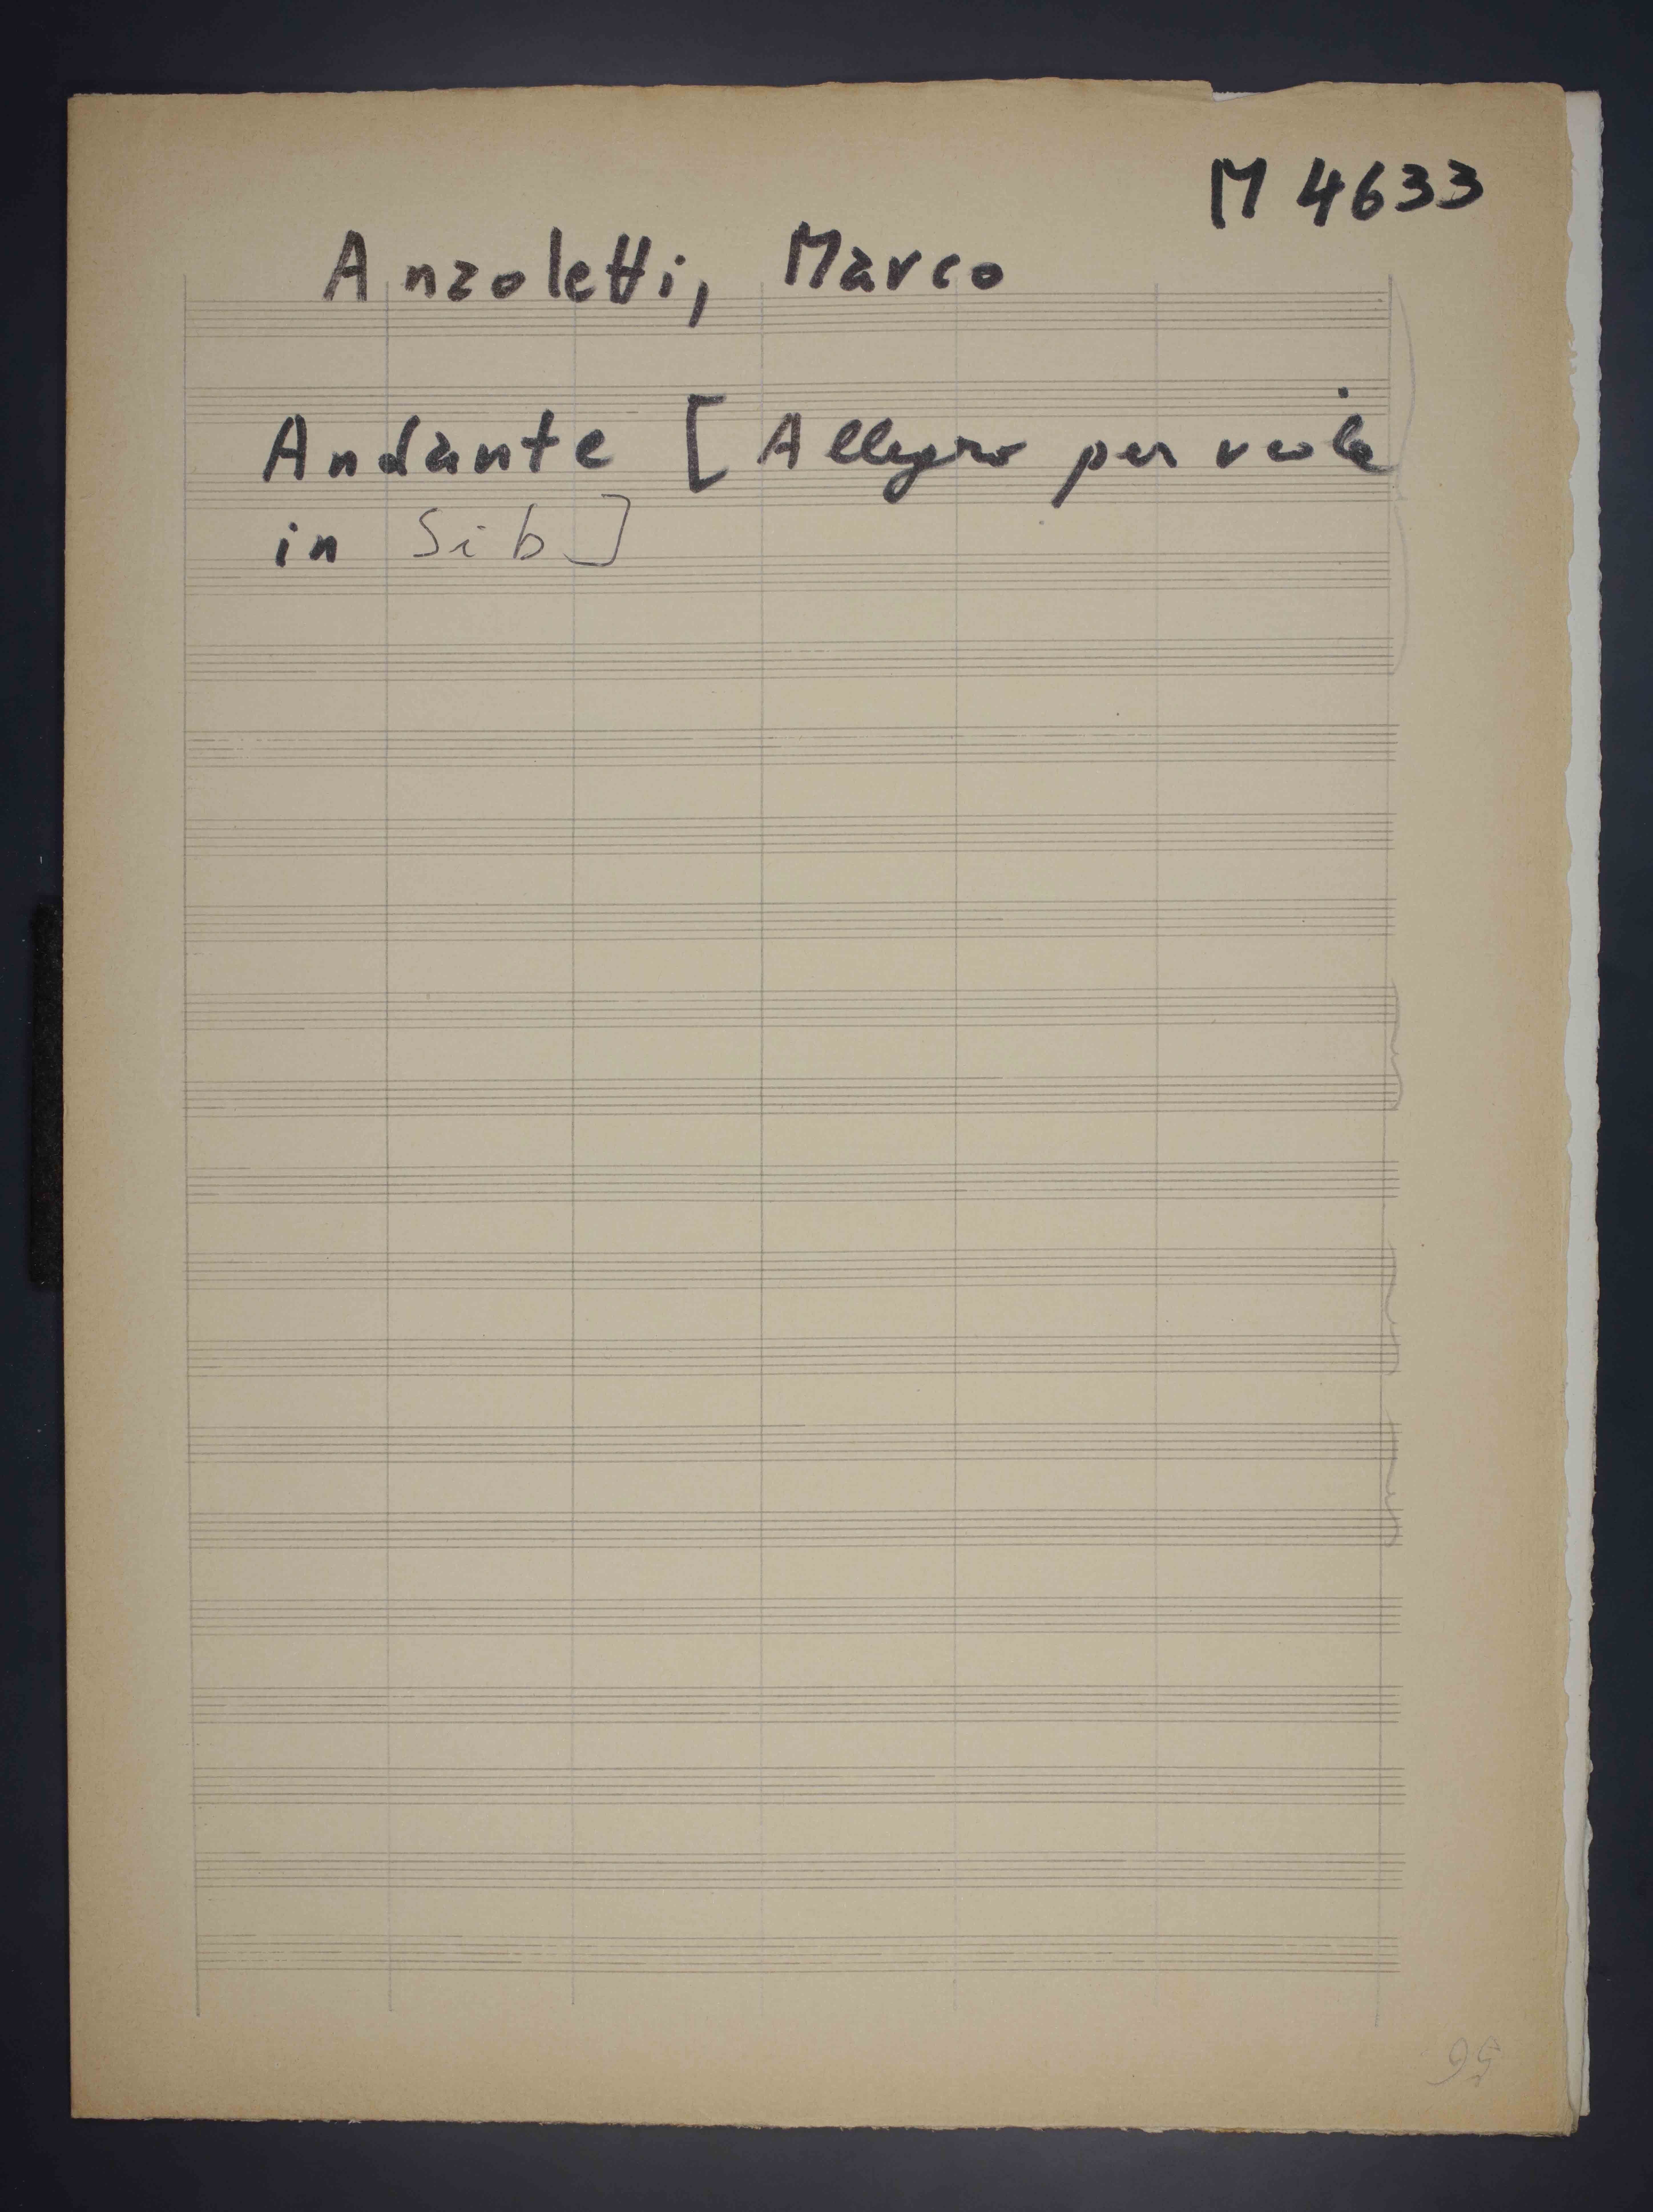 M 4633
Anzoletti, Marco
Andante [Allegro per viola
in Sib]